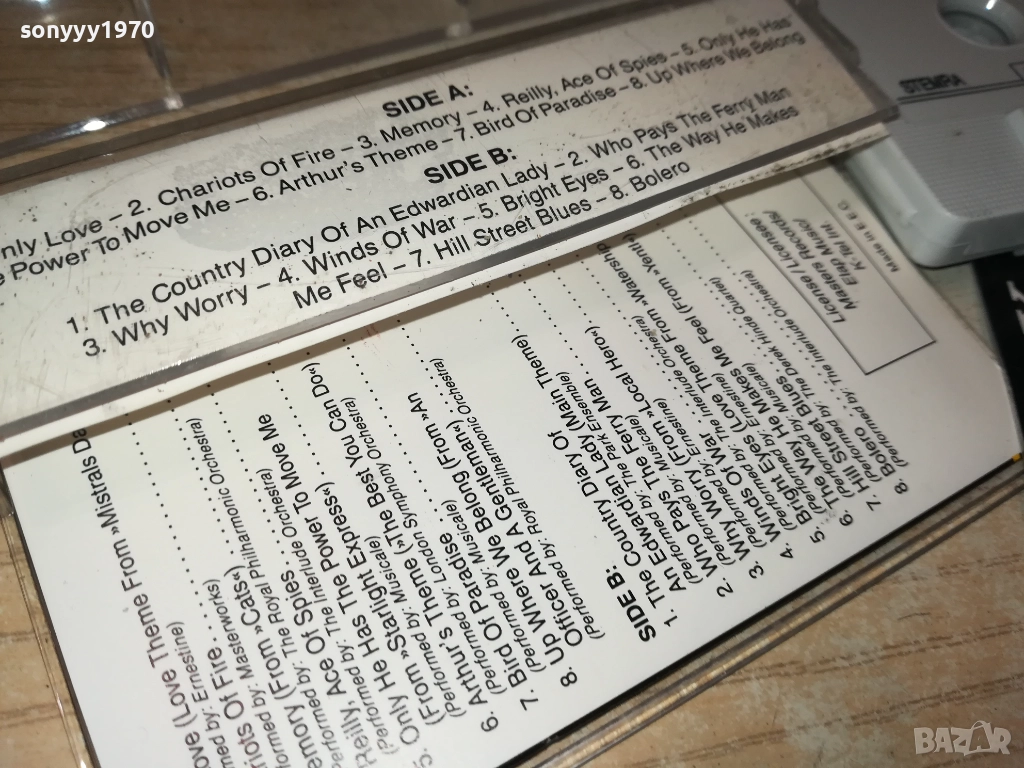 sonyyy1970
SIDE A:
nly Love – 2. Chariots Of Fire – 3. Memory – 4. Reilly, Ace Of Spies – 5. Only He Has
e Power To Move Me – 6. Arthur's Theme – 7. Bird Of Paradise – 8. Up Where We Belong
SIDE B:
1. The Country Diary Of An Edwardian Lady – 2. Who Pays The Ferry Man
3. Why Worry – 4. Winds Of War – 5. Bright Eyes – 6. The Way He Makes
Me Feel – 7. Hill Street Blues – 8. Bolero
STEMRA
ove (Love Theme From »Mistrals Da
med by: Ernestine)
riots Of Fire
ormed by: Masterworks)
emory (From »Cats«)
erformed by: The Royal Philharmonic Orchestra)
Reilly, Ace Of Spies
(Performed by: The Interlude Orchestra)
5. Only He Has The Power To Move Me
(From »Starlight Express«)
(Performed by: Musicale)
6. Arthur's Theme (»The Best You Can Do«)
(Performed by: London Symphony Orchestra)
7. Bird Of Paradise
(Performed by: Musicale)
8. Up Where We Belong (From »An
Officer And A Gentleman«)
(Performed by: Royal Philharmonic Orchestra)
SIDE B:
1. The Country Diary Of
An Edwardian Lady (Main Theme)
(Performed by: The Park Ensemble)
2. Who Pays The Ferry Man
(Performed by: Musicale)
3. Why Worry (From »Local Hero«)
(Performed by: Ernestine)
4. Winds Of War
(Performed by: The Interlude Orchestra)
5. Bright Eyes (Love Theme From »Watership
(Performed by: Ernestine)
6. The Way He Makes Me Feel (From »Yentl
(Performed by: Musicale)
7. Hill Street Blues
(Performed by: The Derek Hinde Quartet)
8. Bolero
(Performed by: The Interlude Orchestra)
License/Licensee:
Masters Records/
Music/
K-Tel Int
Made in E.E.C.
BAZAR